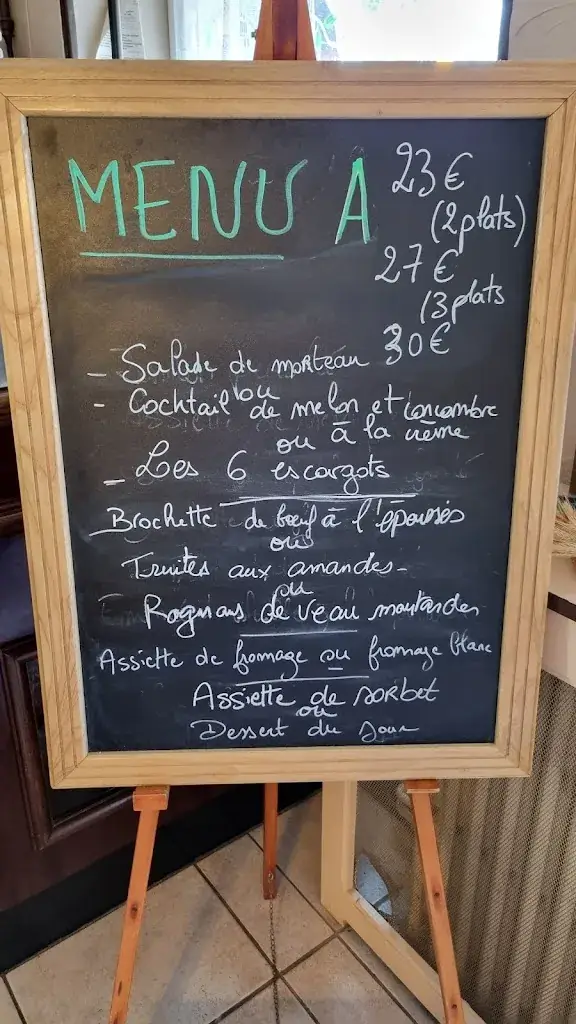 MENU A
23€
(2plats)
27€
(3plats
30€
- Salade de morteau
ou
- Cocktail de melon et concombre
ou à la crème
- Les 6 escargots
Brochette de bœuf à l'époisses
ou
Truites aux amandes-
ou
Rognons de veau moutardes
Assiette de fromage ou fromage blanc
Assiette de sorbet
ou
Dessert du Jour